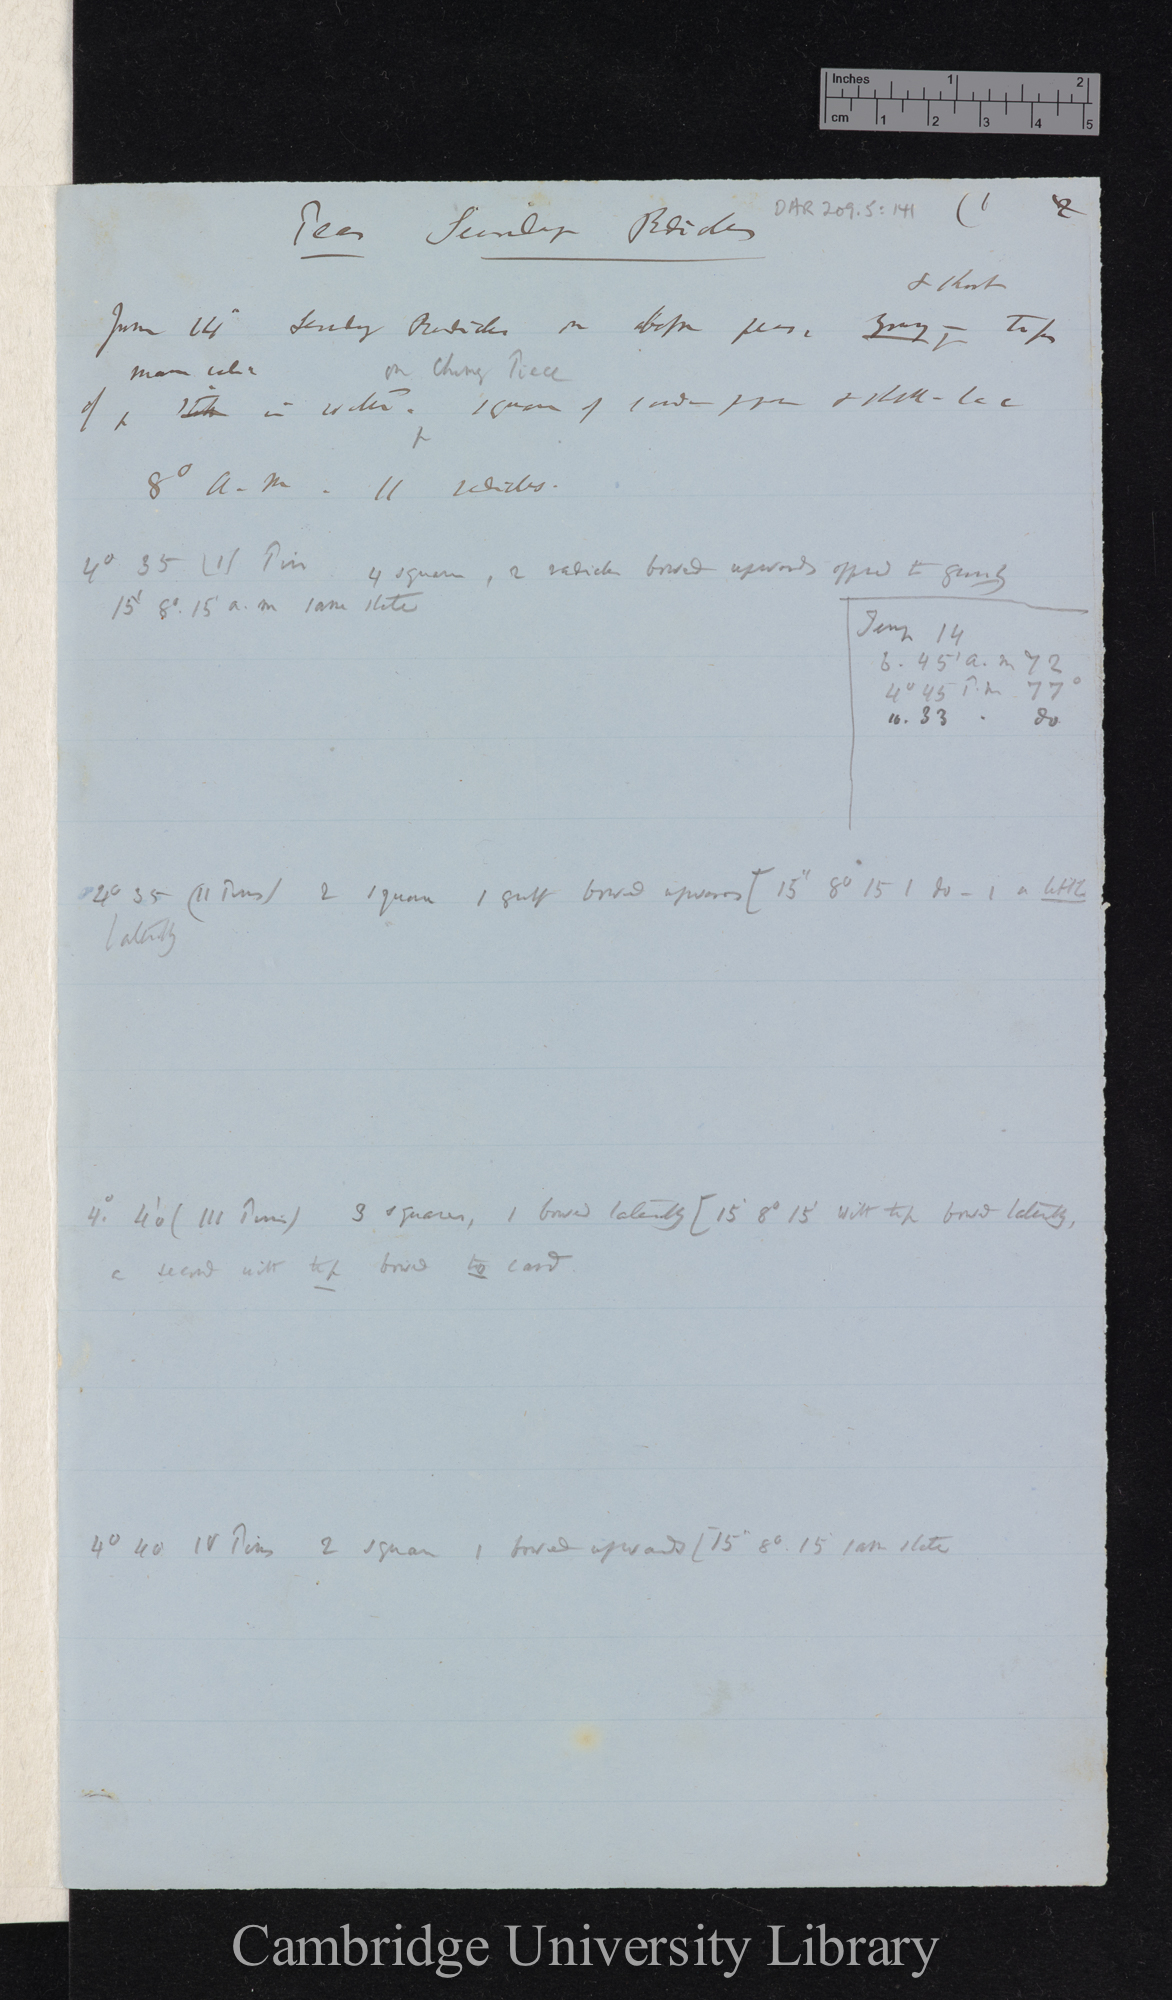 Inches 1 2
cm 1 2 3 4 5
DAR 209.5: 141 (1 2
Peas Secondary Radicles
& short
June 14th Secondary Radicles on above peas, young tips
on Chimney Piece
of in water. squares of card paper & shell-lac
8° a.m. 11 radicles.
4° 35 (1) Pin 4 squares, 2 radicles bowed upwards opposed to gravity
15' 8°. 15 a.m same state
Temp 14
6. 45' a.m 72
4° 45 P.m 77°
10. 33 . do
4° 35 (II Pins) 2 squares 1 bowed upwards [15" 8° 15 1 do - 1 a little
laterally
4°. 40 (III Pins) 3 squares, 1 bowed laterally [15 8° 15' with tip bowed laterally,
a second with tip bowed to card
4° 40 IV Pins 2 squares 1 bowed upwards [15" 8°. 15 same state
Cambridge University Library